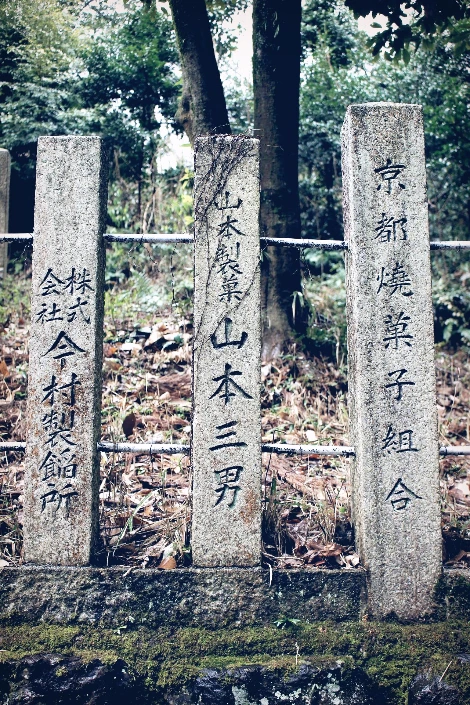 京都燒菓子組合
山本製菓 山本三男
株式会社 今村製餡所